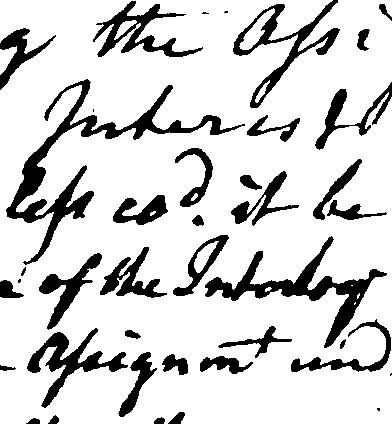 the Assi
Interest
less co^d. it be
of the Interlocr
Assignmt und